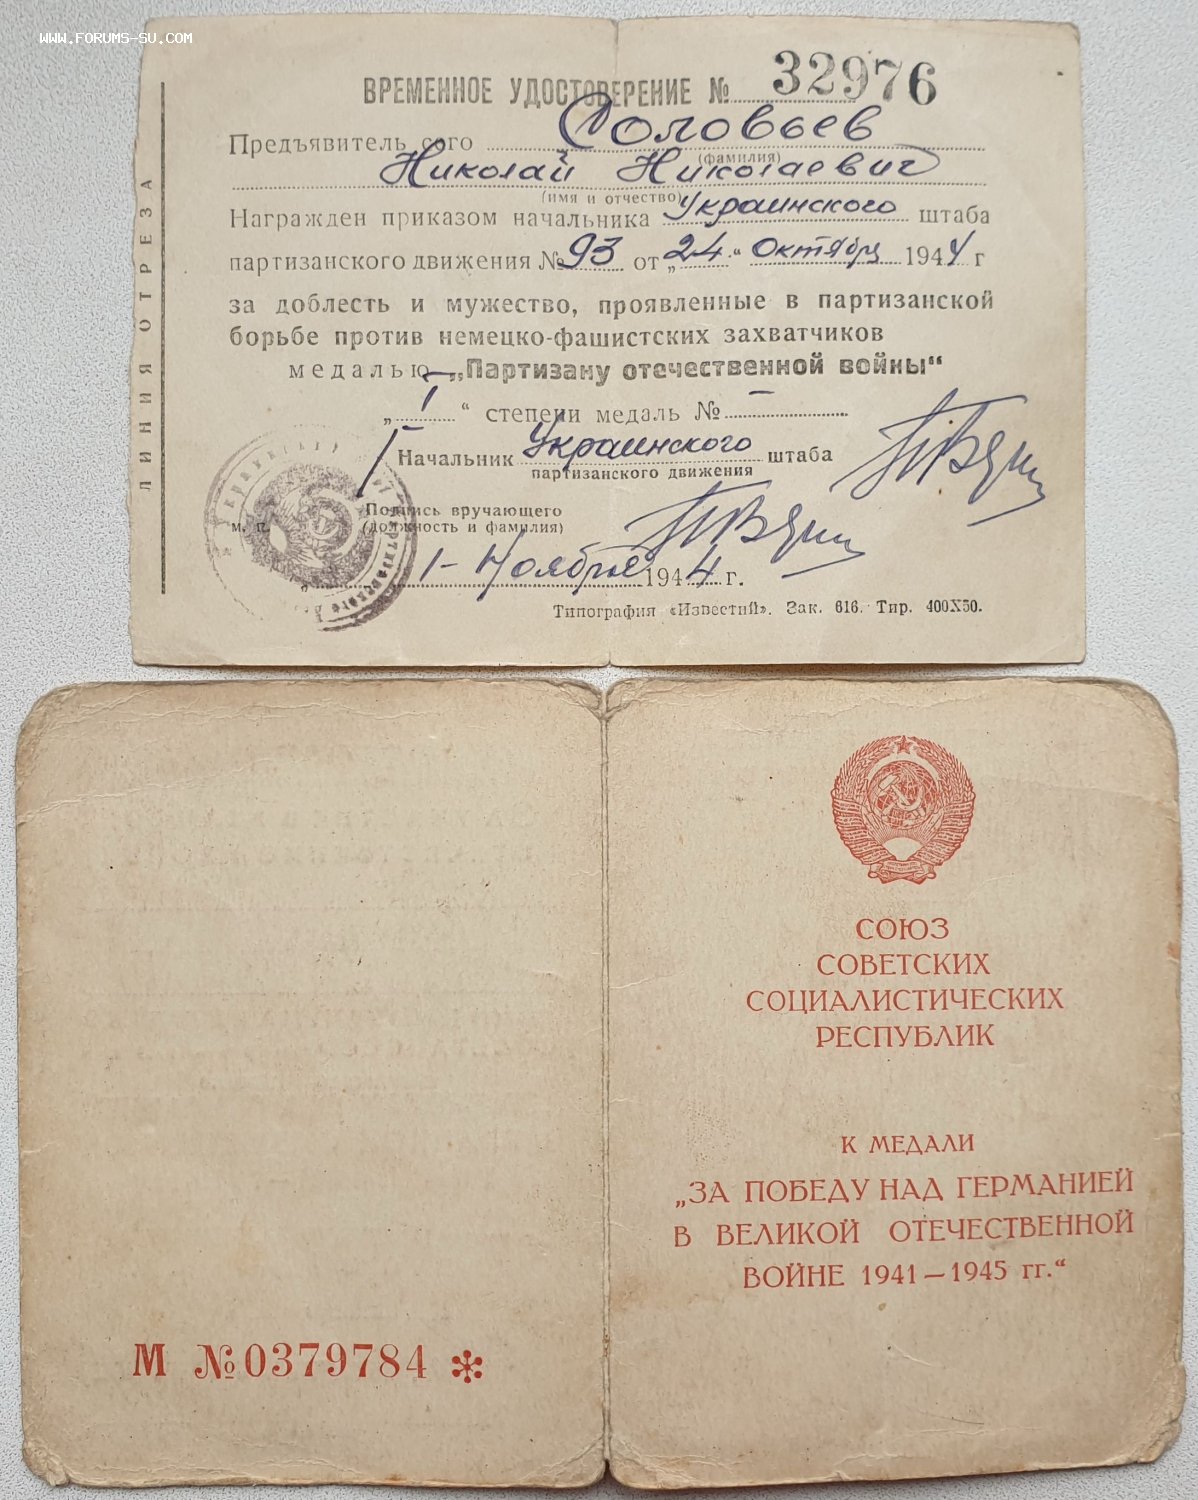 WWW.FORUMS-SU.COM
ВРЕМЕННОЕ УДОСТОВЕРЕНИЕ № 32976
Предъявитель сего Соловьев
(фамилия)
Николай Николаевич
(имя и отчество)
Награжден приказом начальника Украинского штаба
партизанского движения № 93 от „24“ Октября 1944 г
за доблесть и мужество, проявленные в партизанской
борьбе против немецко-фашистских захватчиков
медалью „Партизану отечественной войны“
„I“ степени медаль № —
Начальник Украинского штаба
партизанского движения
Подпись вручающего
м. п. (должность и фамилия)
1- Ноября 1944 г.
Типография «Известий». Зак. 616. Тир. 400X50.
ЛИНИЯ ОТРЕЗА
СОЮЗ
СОВЕТСКИХ
СОЦИАЛИСТИЧЕСКИХ
РЕСПУБЛИК
К МЕДАЛИ
„ЗА ПОБЕДУ НАД ГЕРМАНИЕЙ
В ВЕЛИКОЙ ОТЕЧЕСТВЕННОЙ
ВОЙНЕ 1941—1945 гг.“
М № 0379784 *